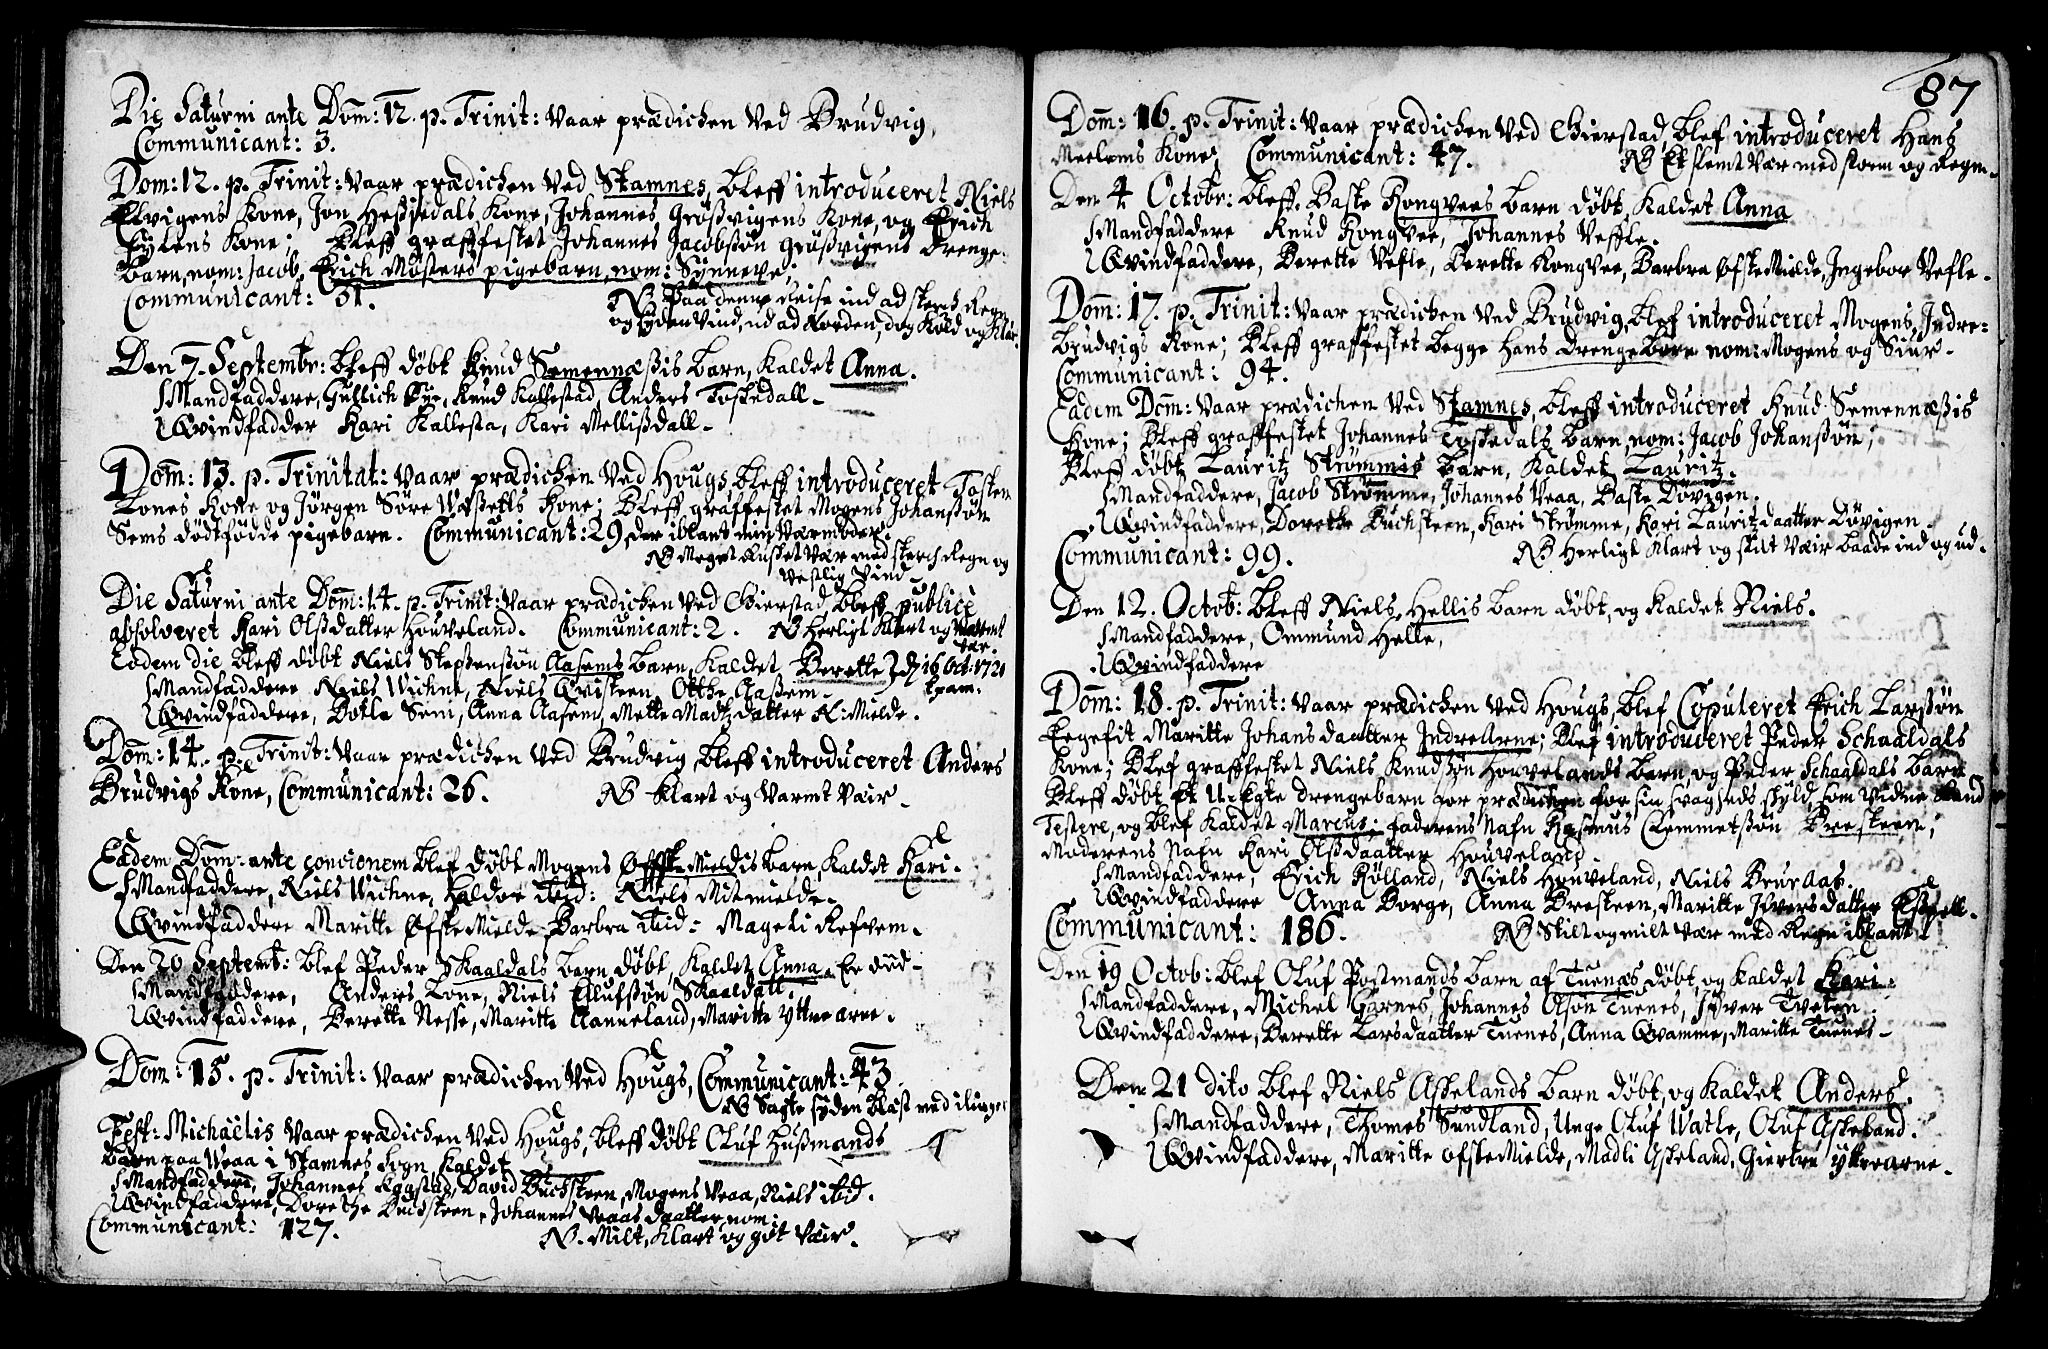 Die Saturni ante Dom: 12. p. Trinit: Vaar prædichen Ved Brudvig,
Communicant: 3.
Dom: 12. p. Trinit: Vaar prædichen Ved Stamnes, bleff introduceret Niels
Elvigens Kone, Jon Heßiedals Kone, Johannes Großvigens Kone, og Erich
Fylens Kone; Bleff graffestet Johannes Jacobssøn Großvigens Drenge-
barn, nom: Jacob, Erich Møsters pigebarn, nom: Synneve.
Communicant: 31. NB Paa denne Reise ind ad sterch Regn
og synden Vind, ud ad Norden, dog Kold og Klar.
Den 7. Septembr: bleff døbt Knud Semennæßis barn, Kaldet Anna.
Mandfaddere, Gullich Fye, Knud Kallestad, Anders Toskedall.
Qvindfadder Kari Kallesta, Kari Mellißdall.
Dom: 13. p. Trinitat: Vaar prædichen Ved Hougs, bleff introduceret Tosten
Lones Kone og Jørgen Søre Usßetts Kone; Bleff graffestet Mogens Johanssøn
Sems dødfødde pigebarn. Communicant: 29, der iblant min Værmoder.
NB Meget Rusket Vær med sterch Regn og
Vestlig Vind.
Die Saturni ante Dom: 14. p. Trinit: Vaar prædichen Ved Gierstad, bleff publicè
absolveret Kari Olßdatter Houveland. Communicant: 2. NB herligt Klart og Varmt
Vær.
Eodem die bleff døbt Niels Steffenssøn Aasems barn, Kaldet Berette
Mandfaddere Niels Vichne, Niels Qvisteen, Otthe Aaßem.
Qvindfaddere, Botle Seni, Anna Aasem, Mette Madtzdatter N: Mielde.
Dom: 14. p. Trinit: Vaar prædichen Ved Brudvig, bleff introduceret Anders
Brudvigs Kone, Communicant: 26. NB Klart og Varmt Vair.
Eadem Dom: ante concionem blef døbt Mogens Øffste Mieldis barn, Kaldet Kari.
Mandfaddere, Niels Vichne, Haldor ibid: Niels Mitmielde.
Qvindfaddere Maritte Øfste Mielde, Barbra ibid: Mageli Refvem.
Den 20 Septemb: blef Peder Skaaldals barn døbt, Kaldet Anna. Er død.
Mandfaddere, Anders Lone, Niels Ellufssøn Skaaldall.
Qvindfaddere, Berette Nesse, Maritte Aanneland, Maritte Yttre Arne.
Dom: 15. p. Trinit: Vaar prædichen Ved Hougs, Communicant: 43
NB Sagte synden blæst med ilinger
Fest: Michaëlis Vaar prædichen Ved Hougs, bleff døbt Oluf Hußmands
barn paa Veaa i Stamnes Sogn, Kaldet
Mandfaddere, Johannes Eggstad, David Buchsteen, Mogens Veaa, Niels ibid.
Qvindfaddere, Dorethe Buchsteen, Johannes Veaas daatter, nom:
Communicant: 127. N. Milt, Klart og got Vair.
87
Dom: 16. p. Trinit: Vaar prædichen Ved Gierstad, blef introduceret Hans
Meelems Kone; Communicant: 47. NB Et slemt Vær med storm og Regn.
Den 4 Octobr: bleff Baste Rongvees barn døbt, Kaldet Anna
Mandfaddere Knud Rongvee, Johannes Veffle.
Qvindfaddere, Berette Vefle, Berette Rongvee, Barbra Øfste Mielde, Ingebor Vefle.
Dom: 17. p. Trinit: Vaar prædichen Ved Brudvig, blef introduceret Mogens Indre-
brudvigs Kone; Bleff graffestet begge hans drengebørn nom: Mogens og Siur.
Communicant: 94.
Eadem Dom: Vaar prædichen Ved Stamnes, bleff introduceret Knud Semennæßis
Kone; Bleff graffestet Johannes Toskedals barn, nom: Jacob Johanssøn;
Bleff døbt Lauritz Strømmis barn, Kaldet Lauritz.
Mandfaddere, Jacob Strømme, Johannes Veaa, Baste Døvigen.
Qvindfaddere, Dorethe Buchsteen, Kari Strømme, Kari Lauritzdaatter Døvigen.
Communicant: 99. NB Herligt Klart og stilt Vair baade ind og ud.
Den 12. Octob: Bleff Niels Hellis barn døbt, og Kaldet Niels.
Mandfaddere, Ommund Helle,
Qvindfaddere
Dom: 18. p. Trinit: Vaar prædichen Ved Hougs, blef Copuleret Erich Larssøn
Maritte Johansdaatter Indre Arne; Blef introduceret Peder Schaaldals
Kone; Blef graffestet Niels Knudssøn Houvelands barn og Peder Schaaldals barn
Bleff døbt Et U-Egte drengebarn før prædichen for sin svagheds skyld, som
og blef Kaldet Marcus; faderens Nafn Rasmus Clemmetssøn Bresteen,
Moderens Nafn Kari Olßdaatter Houveland.
Mandfaddere, Erich Rølland, Niels Houveland, Niels Bruraas.
Qvindfaddere Anna Borge, Anna Bresteen, Maritte Iversdatter
Communicant: 186. NB Stilt og milt Vær med Regn iblant.
Den 19 Octob: blef Oluf Postmands barn af Tuenæs døbt, og Kaldet Kari.
Mandfaddere, Michel Garnes, Johannes Olsøn Tuenes, Ifver Tveten.
Qvindfaddere, Berette Larsdaatter Tuenes, Anna Qvamme, Maritte Tuenes.
Den 21 dito blef Niels Askelands barn døbt, og Kaldet Anders.
Mandfaddere, Thomes Sundland, Unge Oluf Vatle, Oluf Askeland.
Qvindfaddere, Maritte Øfste Mielde, Madli Askeland, Giertru Yttrearne.